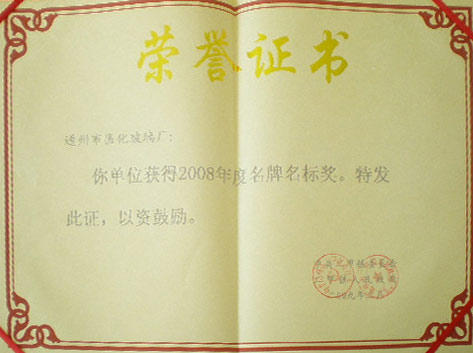 荣誉证书
通州市强化玻璃厂:
你单位获得2008年度名牌名标奖。特发
此证，以资鼓励。